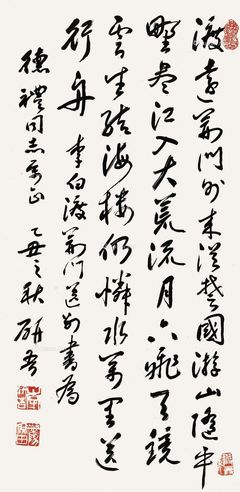 渡遠荊門外来從楚國游山隨平
野盡江入大荒流月下飛天鏡
雲生結海樓仍憐水萬里送
行舟 李白渡荊門送別書為
德禮同志正 乙丑之秋 研吾